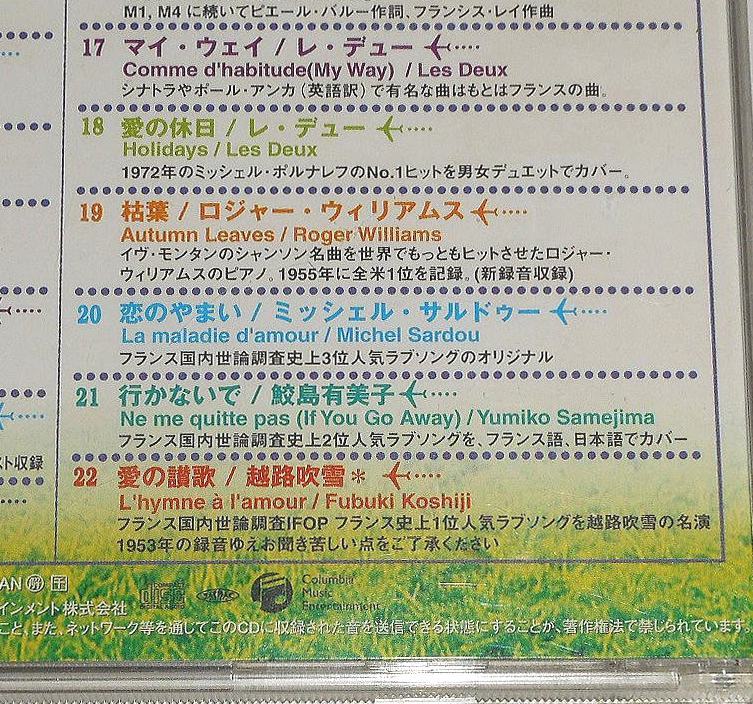 M1, M4 に続いてピエール・バルー作詞、フランシス・レイ作曲
17 マイ・ウェイ / レ・デュー
Comme d'habitude(My Way) / Les Deux
シナトラやポール・アンカ(英語訳)で有名な曲はもとはフランスの曲。
18 愛の休日 / レ・デュー
Holidays / Les Deux
1972年のミッシェル・ポルナレフのNo.1ヒットを男女デュエットでカバー。
19 枯葉 / ロジャー・ウィリアムス
Autumn Leaves / Roger Williams
イヴ・モンタンのシャンソン名曲を世界でもっともヒットさせたロジャー・
ウィリアムスのピアノ。1955年に全米1位を記録。(新録音収録)
20 恋のやまい / ミッシェル・サルドゥー
La maladie d'amour / Michel Sardou
フランス国内世論調査史上3位人気ラブソングのオリジナル
21 行かないで / 鮫島有美子
Ne me quitte pas (If You Go Away) / Yumiko Samejima
フランス国内世論調査史上2位人気ラブソングを、フランス語、日本語でカバー
スト収録
22 愛の讃歌 / 越路吹雪*
L'hymne à l'amour / Fubuki Koshiji
フランス国内世論調査IFOP フランス史上1位人気ラブソングを越路吹雪の名演
1953年の録音ゆえお聞き苦しい点をご了承ください
Columbia
Music
Entertainment
インメント株式会社
こと、また、ネットワーク等を通じてこのCDに収録された音を送信できる状態にすることが、著作権法で禁じられています。